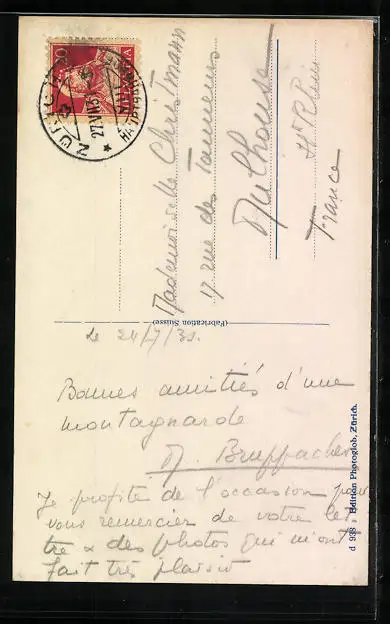 ZÜRICH
HAUPTBAHNHOF
HELVETIA
Mademoiselle Christmann
17 rue des Tanneurs
Mulhouse
Ht Rhin
France
(Fabrication Suisse)
Le 24/7/31.
Bonnes amitiés d'une
montagnarde
M. Bruppacher
Je profite de l'occasion pour
vous remercier de votre let
tre & des photos qui m'ont
fait très plaisir
Edition Photoglob, Zürich.